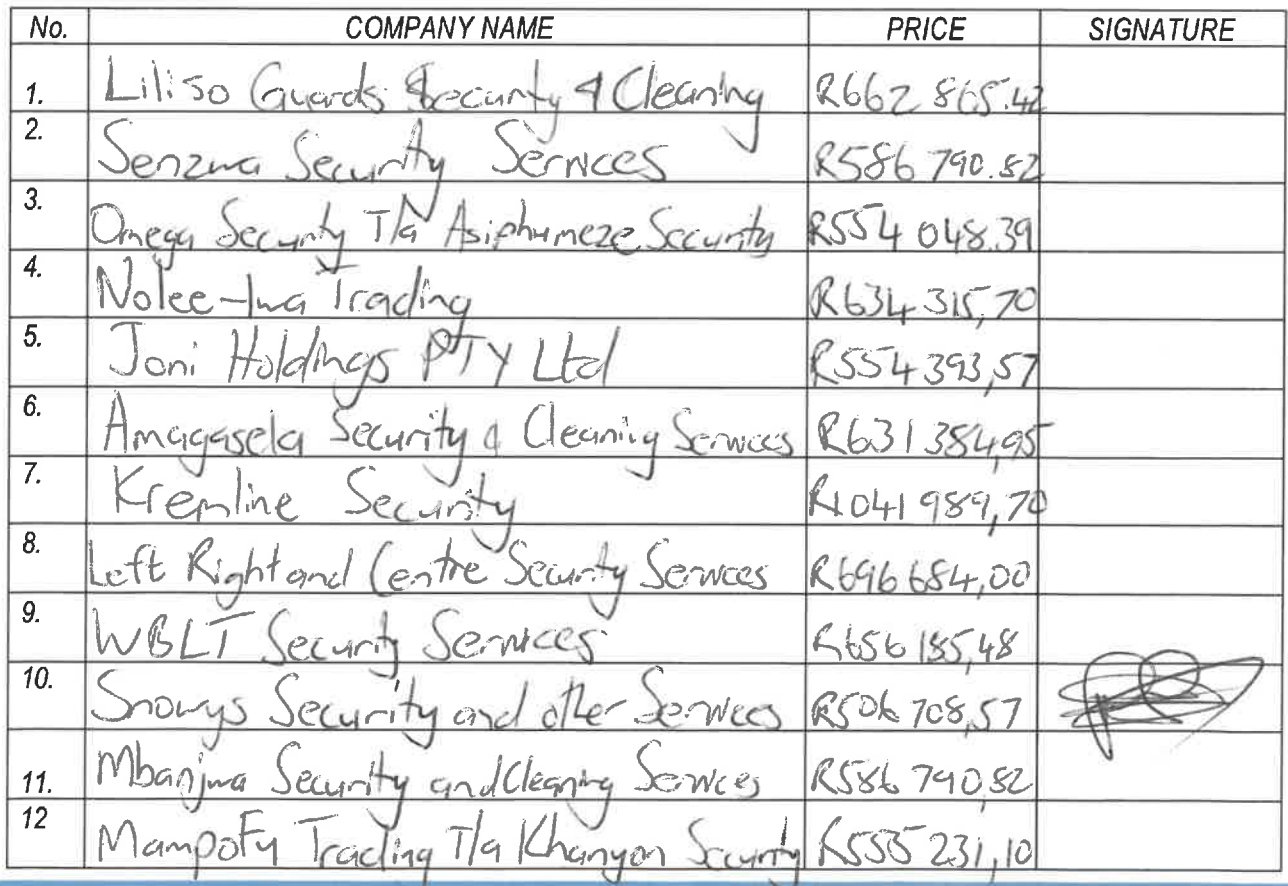 No. COMPANY NAME PRICE SIGNATURE
1. Liliso Guards Security & Cleaning R662 865.42
2. Senzwa Security Services R586 790.82
3. Omega Security T/a Asiphumeze Security R554 048.39
4. Nolee-Iwa Trading R634 315,70
5. Joni Holdings PTY Ltd R554 393,57
6. Amagasela Security & Cleaning Services R631 384,95
7. Kremline Security R1 041 989,70
8. Left Right and Centre Security Services R696 684,00
9. WBLT Security Services R656 185,48
10. Snowys Security and other Services R506 708,57
11. Mbanjwa Security and Cleaning Services R586 790,82
12 Mampofu Trading T/a Khanyon Security R555 231,10